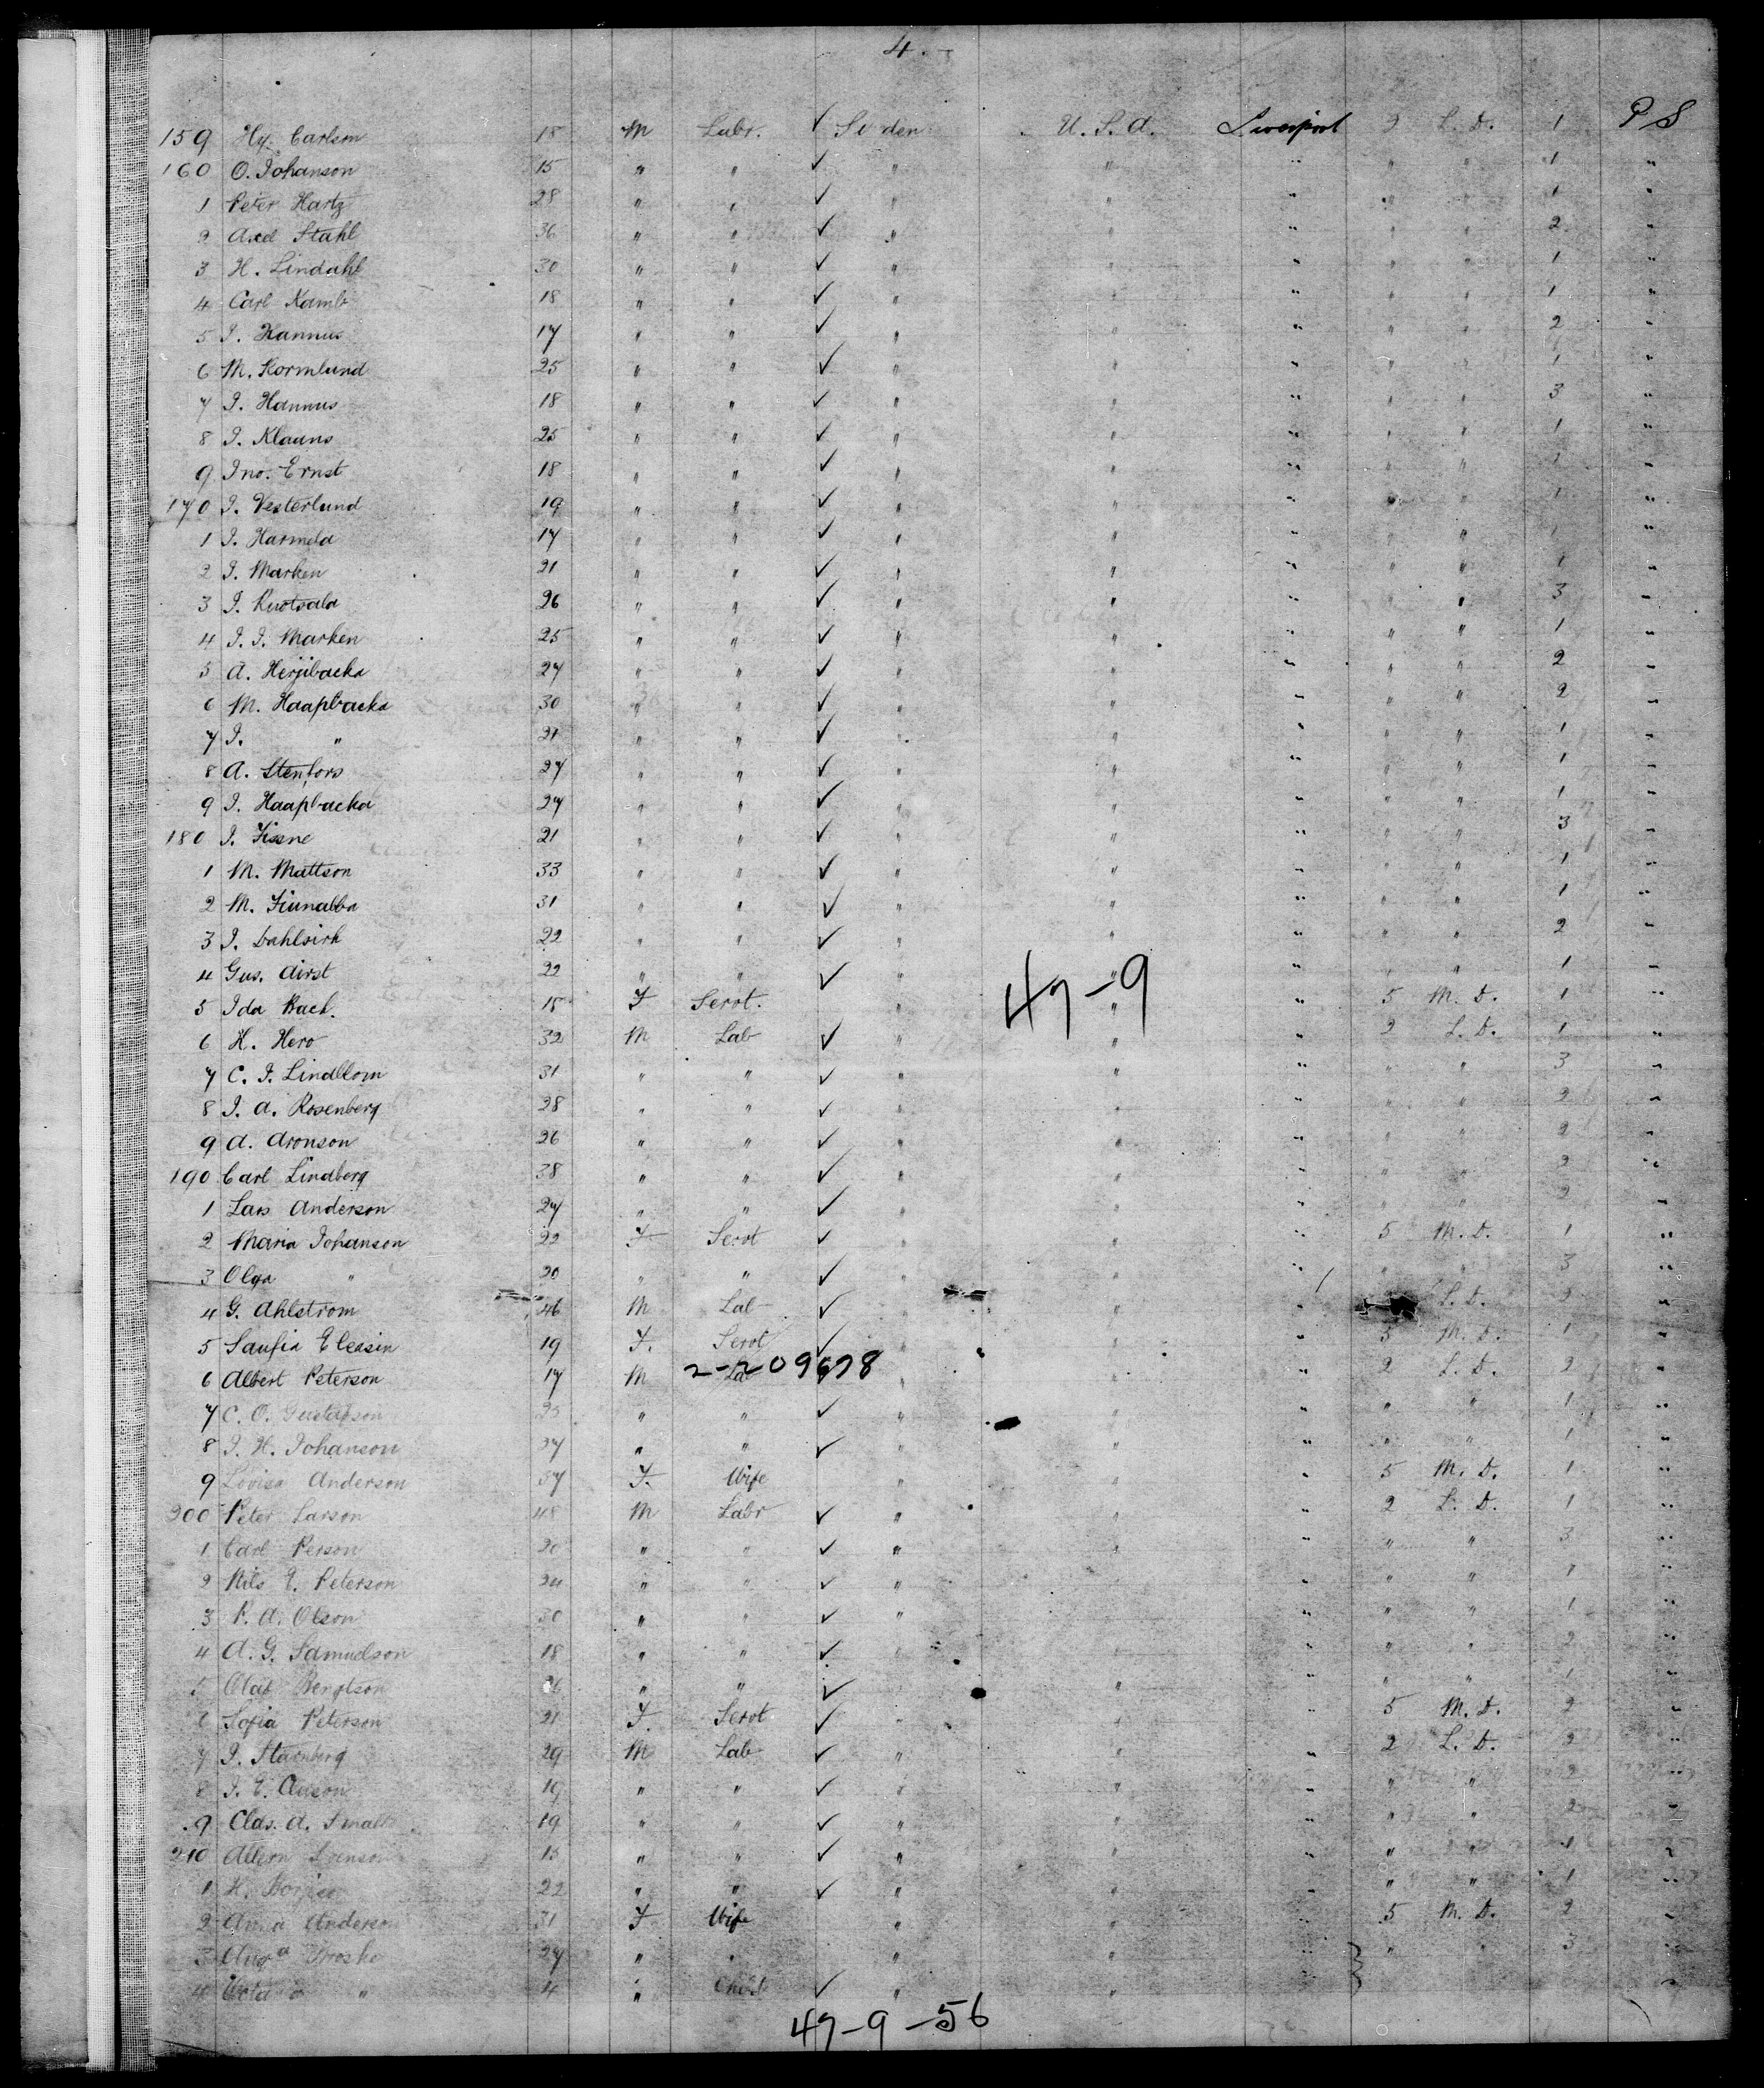 4.
159 Hy. Carlson 18 M Labr. ✓ Sweden U. S. A. Liverpool 2 L. D. 1 P S
160 O. Johanson 15 " " ✓ " " " " " 1 "
1 Peter Hartz 28 " " ✓ " " " " " 1 "
2 Axel Stahl 36 " " ✓ " " " " " 2 "
3 H. Lindahl 30 " " ✓ " " " " " 1 "
4 Carl Kamb 18 " " ✓ " " " " " 1 "
5 J. Hannus 17 " " ✓ " " " " " 2 "
6 M. Kormlund 25 " " ✓ " " " " " 1 "
7 J. Hannus 18 " " ✓ " " " " " 3 "
8 J. Klauns 25 " " ✓ " " " " " 1 "
9 Jno. Ernst 18 " " ✓ " " " " " 1 "
170 J. Vesterlund 19 " " ✓ " " " " " 1 "
1 J. Harmela 17 " " ✓ " " " " " 1 "
2 J. Marken 21 " " ✓ " " " " " 1 "
3 J. 26 " " ✓ " " " " " 3 "
4 J. J. Marken 25 " " ✓ " " " " " 1 "
5 A. Herjibacka 27 " " ✓ " " " " " 2 "
6 M. Haapbacka 30 " " ✓ " " " " " 2 "
7 J. " 21 " " ✓ " " " " " 1 "
8 A. Stenfors 27 " " ✓ " " " " " 1 "
9 J. Haapbacka 27 " " ✓ " " " " " 1 "
180 J. 21 " " ✓ " " " " " 3 "
1 M. Mattson 33 " " ✓ " " " " " 1 "
2 M. 31 " " ✓ " " " " " 1 "
3 J. 22 " " ✓ " " " " " 2 "
4 Gus. Airst 22 " " ✓ " " " " " 1 "
47-9
5 Ida Back. 18 F Servt. " " " 5 M. D. 1 "
6 H. Hero 32 M Lab ✓ " " " 2 L. D. 1 "
7 C. J. Lindblom 31 " " ✓ " " " " " 3 "
8 J. A. Rosenberg 28 " " ✓ " " " " " 2 "
9 A. Aronson 26 " " ✓ " " " " " 2 "
190 Carl Lindborg 38 " " ✓ " " " " " 2 "
1 Lars Anderson 27 " " ✓ " " " " " 2 "
2 Maria Johanson 22 F Servt ✓ " " " 5 M. D. 1 "
3 Olga " 20 " " ✓ " " " " " 3 "
4 G. Ahlstrom 46 M Lab ✓ " " " L. D. 2 "
5 Saufia Eleasin 19 F. Servt ✓ " " " 5 M. D. 1 "
2-209678
6 Albert Peterson 17 M La " " " 2 L. D. 2 "
7 C. O. Gustafson 25 " " ✓ " " " " " 1 "
8 J. H. Johanson 37 " " ✓ " " " " " 1 "
9 Lovisa Anderson 37 F. Wife " " " 5 M. D. 1 "
200 Peter Larson 48 M Labr ✓ " " " 2 L. D. 1 "
1 Carl Person 20 " " ✓ " " " " " 3 "
2 Nils E. Peterson 24 " " ✓ " " " " " 1 "
3 P. A. Olson 30 " " ✓ " " " " " 1 "
4 A. G. Samuelson 18 " " ✓ " " " " " 2 "
5 Olaf Bengtson 26 " " ✓ " " " " " 1 "
6 Sofia Peterson 21 F. Servt ✓ " " " 5 M. D. 2 "
7 J. Starnberg 29 M Lab ✓ " " " 2 L. D. 2 "
8 J. E. 19 " " ✓ " " " " " 2 "
9 Clas. A. 19 " " ✓ " " " " " 2 "
210 Svenson 15 " " ✓ " " " " " 1 "
1 H. 22 " " ✓ " " " " " 1 "
2 Anna Anderson 31 F Wife " " " 5 M. D. 2 "
3 27 " " " " " " " 3 "
4 " 4 " Child ✓ " " " "
47-9-56